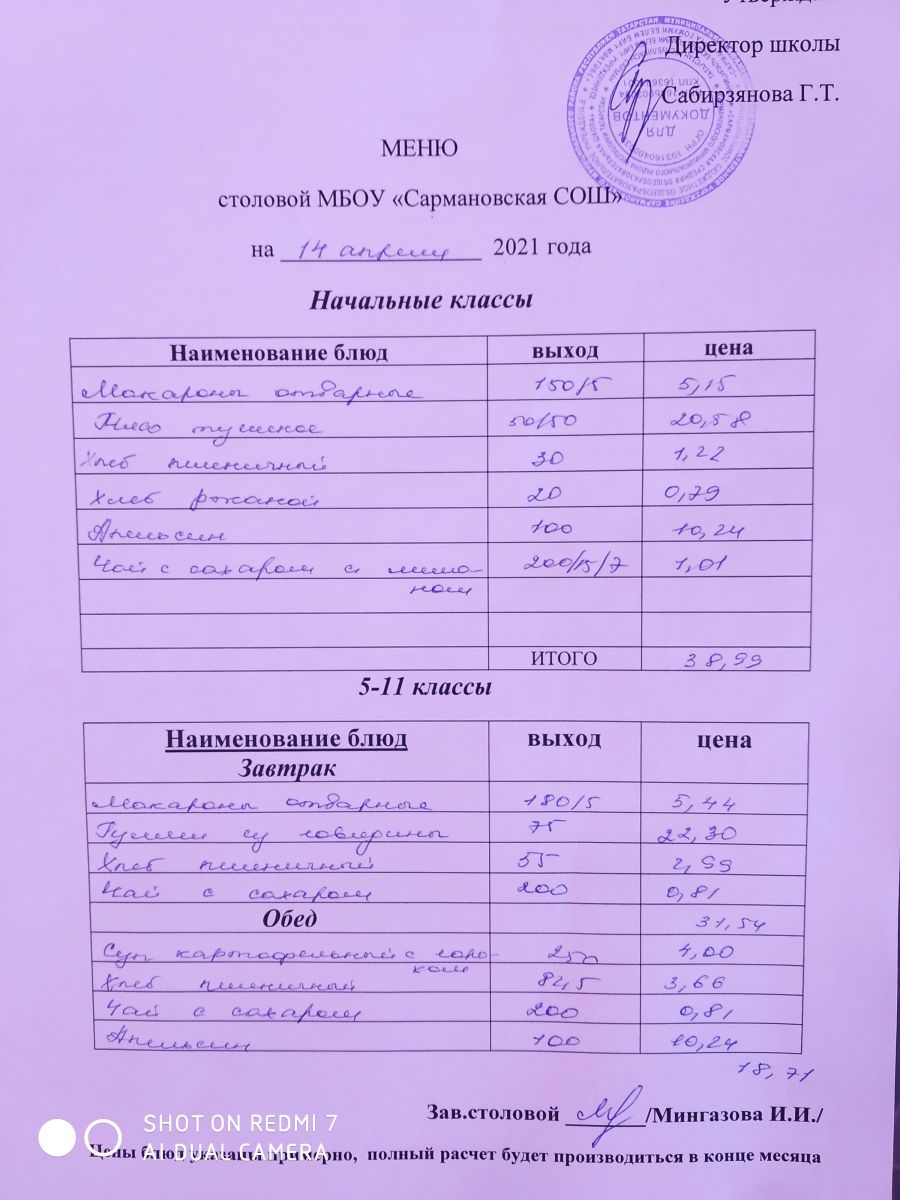 Директор школы
Сабирзянова Г.Т.
ДЛЯ ДОКУМЕНТОВ
МЕНЮ
столовой МБОУ «Сармановская СОШ»
на 14 апреля 2021 года
Начальные классы
Наименование блюд выход цена
Макароны отварные 150/5 5,15
Мясо тушеное 50/50 20,58
Хлеб пшеничный 30 1,22
Хлеб ржаной 20 0,79
Апельсин 100 10,24
Чай с сахаром и лимо- 200/15/7 1,01
ном
ИТОГО 38,99
5-11 классы
Наименование блюд выход цена
Завтрак
Макароны отварные 180/5 5,44
Гуляш из говядины 75 22,30
Хлеб пшеничный 55 2,99
Чай с сахаром 200 0,81
Обед 31,54
Суп картофельный с горо- 250 4,00
хом
Хлеб пшеничный 82,5 3,66
Чай с сахаром 200 0,81
Апельсин 100 10,24
18,71
Зав.столовой /Мингазова И.И./
Цены блюд указаны примерно, полный расчет будет производиться в конце месяца
SHOT ON REDMI 7
AI DUAL CAMERA